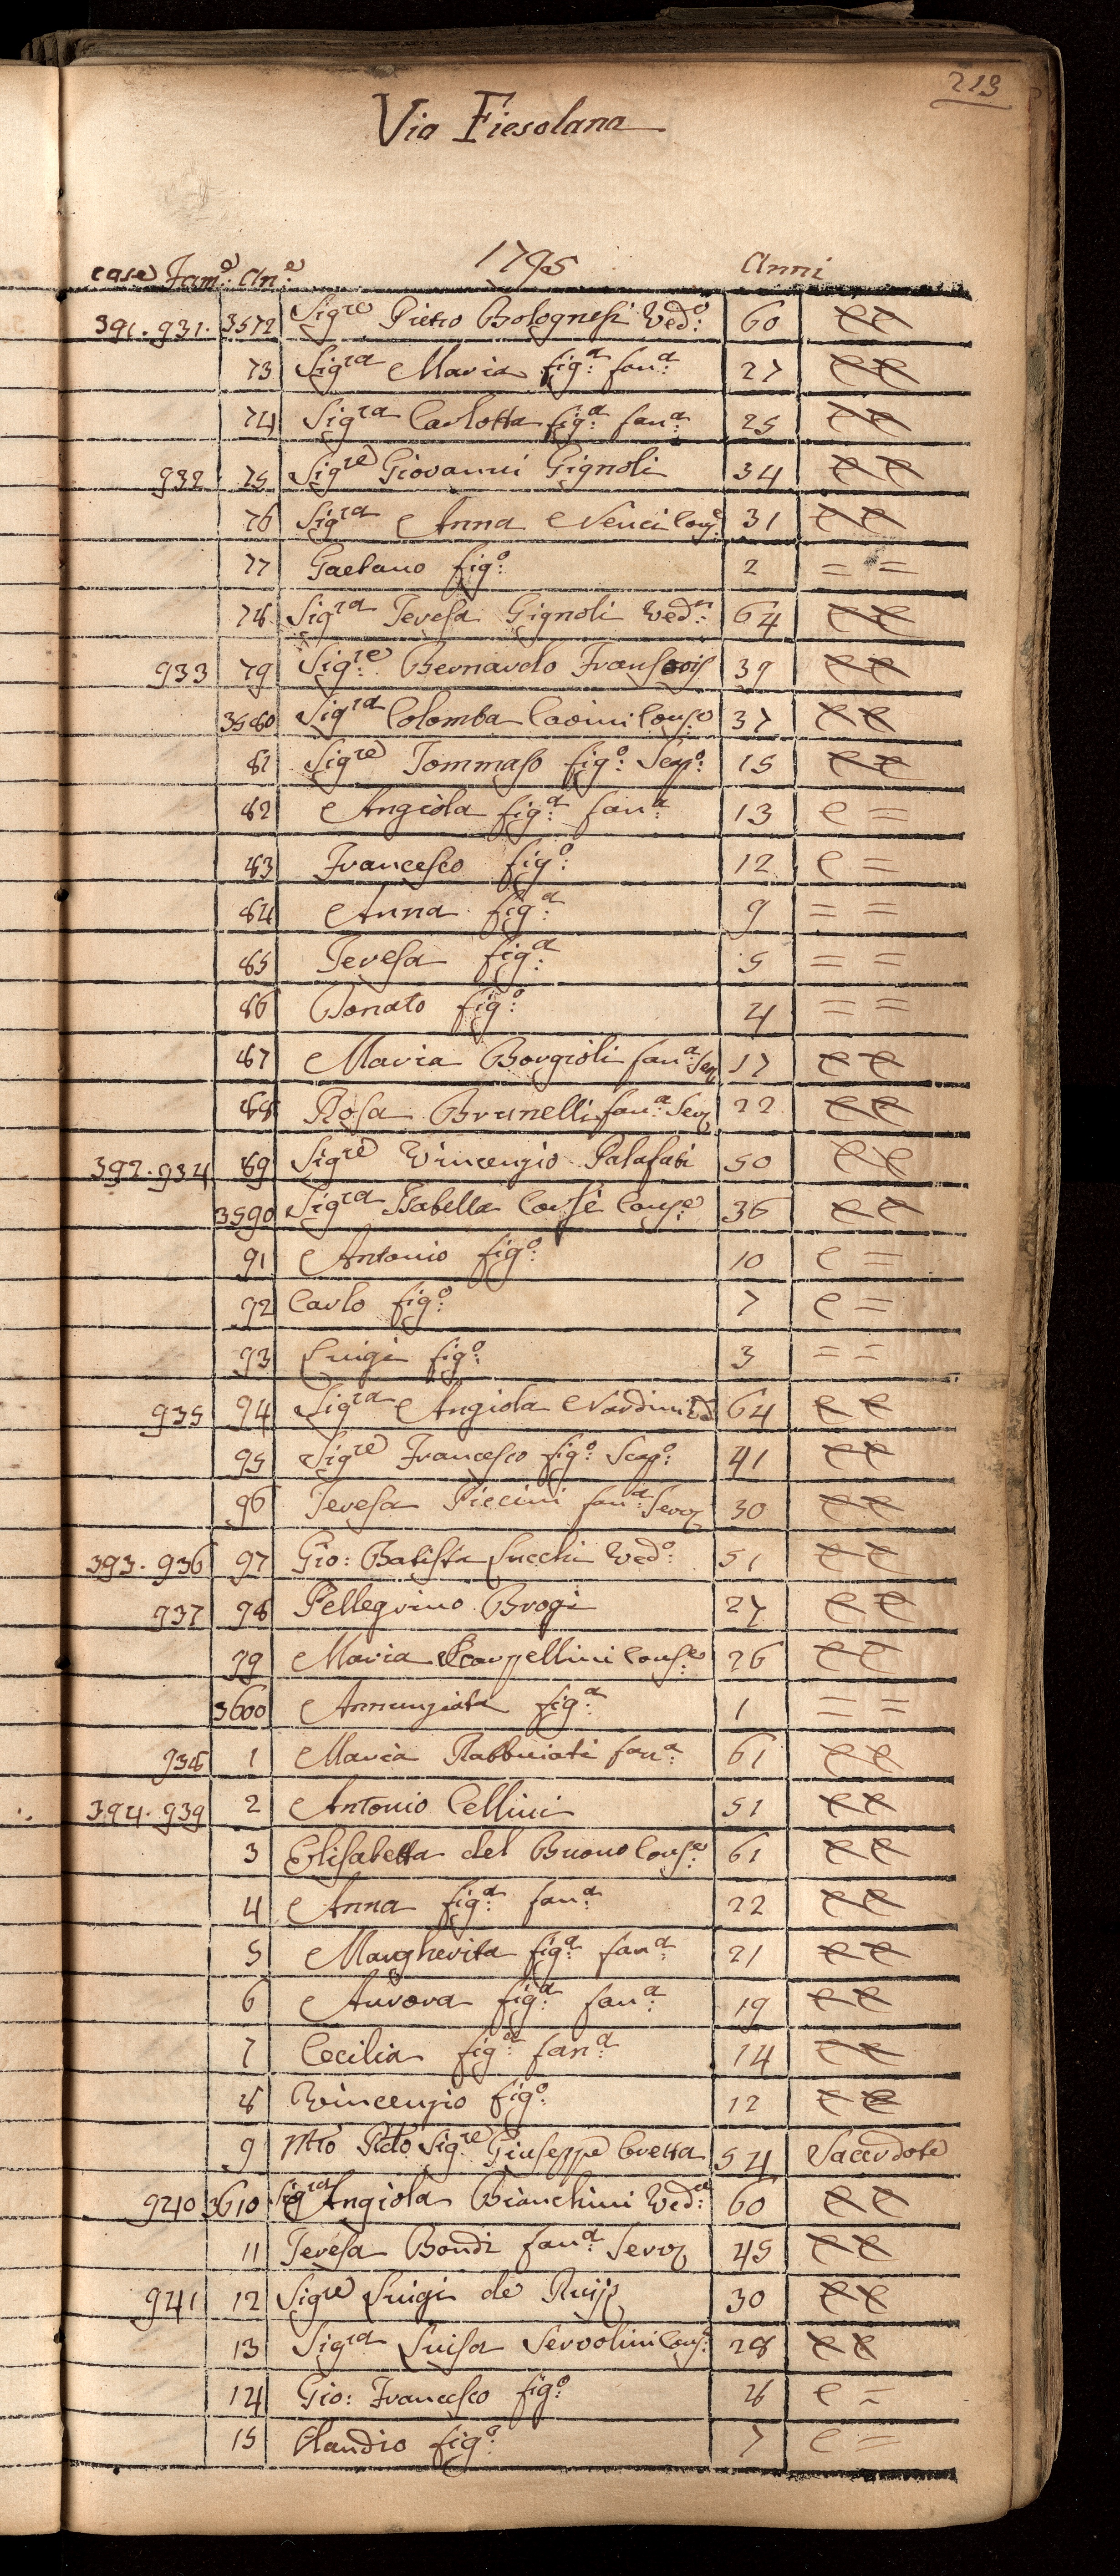 213
Via Fiesolana
1795
case Fam.e An.e Anni
391. 931. 3572 Sig.re Pietro Bolognesi Ved.o: 60 C C
73 Sig.ra Maria fig.a: fan.a: 27 C C
74 Sig.ra Carlotta fig.a: fan.a: 25 C C
932 75 Sig.re Giovanni Gignoli 34 C C
76 Sig.ra Anna Nenci Cons.e: 31 C C
77 Gaetano fig.o: 2 = =
78 Sig.ra Teresa Gignoli Ved.a: 64 C C
933 79 Sig.re: Bernardo 39 C C
3580 Sig.ra Colomba Cons.e 37 C C
81 Sig.re Tommaso fig.o: Scap.o: 15 C C
82 Angiola fig.a: fan.a: 13 C =
83 Francesco fig.o: 12 C =
84 Anna fig.a: 9 = =
85 Teresa fig.a: 5 = =
86 Donato fig.o: 4 = =
87 Maria Borgioli fan.a: Ser. 17 C C
88 Rosa Brunelli fan.a: Ser. 22 C C
392. 934 89 Sig.re Vincenzio Palafati 50 C C
3590 Sig.ra Isabella Corsi Cons.e: 36 C C
91 Antonio fig.o: 10 C =
92 Carlo fig.o: 7 C =
93 Luigi fig.o: 3 = =
935 94 Sig.ra Angiola Nardini Ved. 64 C C
95 Sig.re Francesco fig.o: Scap.o: 41 C C
96 Teresa Piccini fan.a: Serv. 30 C C
393. 936 97 Gio: Batista Lucchi Ved.o: 51 C C
937 98 Pellegrino Brogi 27 C C
99 Maria Scarpellini Cons.e: 26 C C
3600 Annunziata fig.a: 1 = =
938 1 Maria Rabbuiati fan.a: 61 C C
394. 939 2 Antonio Cellini 51 C C
3 Elisabetta del Buono Cons.e: 61 C C
4 Anna fig.a: fan.a: 22 C C
5 Margherita fig.a: fan.a: 21 C C
6 Aurora fig.a: fan.a: 19 C C
7 Cecilia fig.a: fan.a: 14 C C
8 Vincenzio fig.o: 12 C C
9 Mto Rdo Sig.re Giuseppe 54 Sacerdote
940 3610 Sig.ra Angiola Bianchini Ved.a: 60 C C
11 Teresa Bondi fan.a: Serv. 45 C C
941 12 Sig.re Luigi de 30 C C
13 Sig.ra Luisa Servolini Cons.e: 28 C C
14 Gio: Francesco fig.o: 8 C =
15 Claudio fig.o: 7 C =